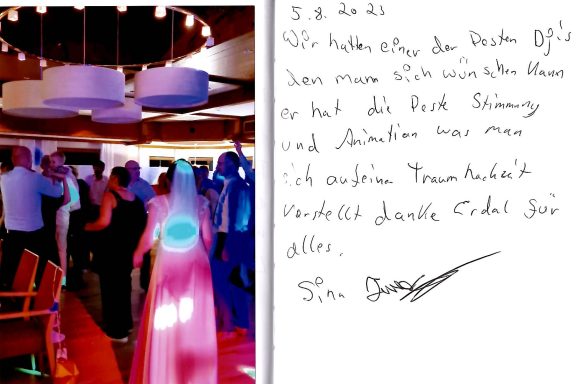 5.8.2023
Wir hatten einer der Besten Dj's
den mann sich wünschen kann
er hat die Beste Stimmung
und Animation was man
sich auf eine Traumhochzeit
vorstellt danke Erdal für
alles.
Sina